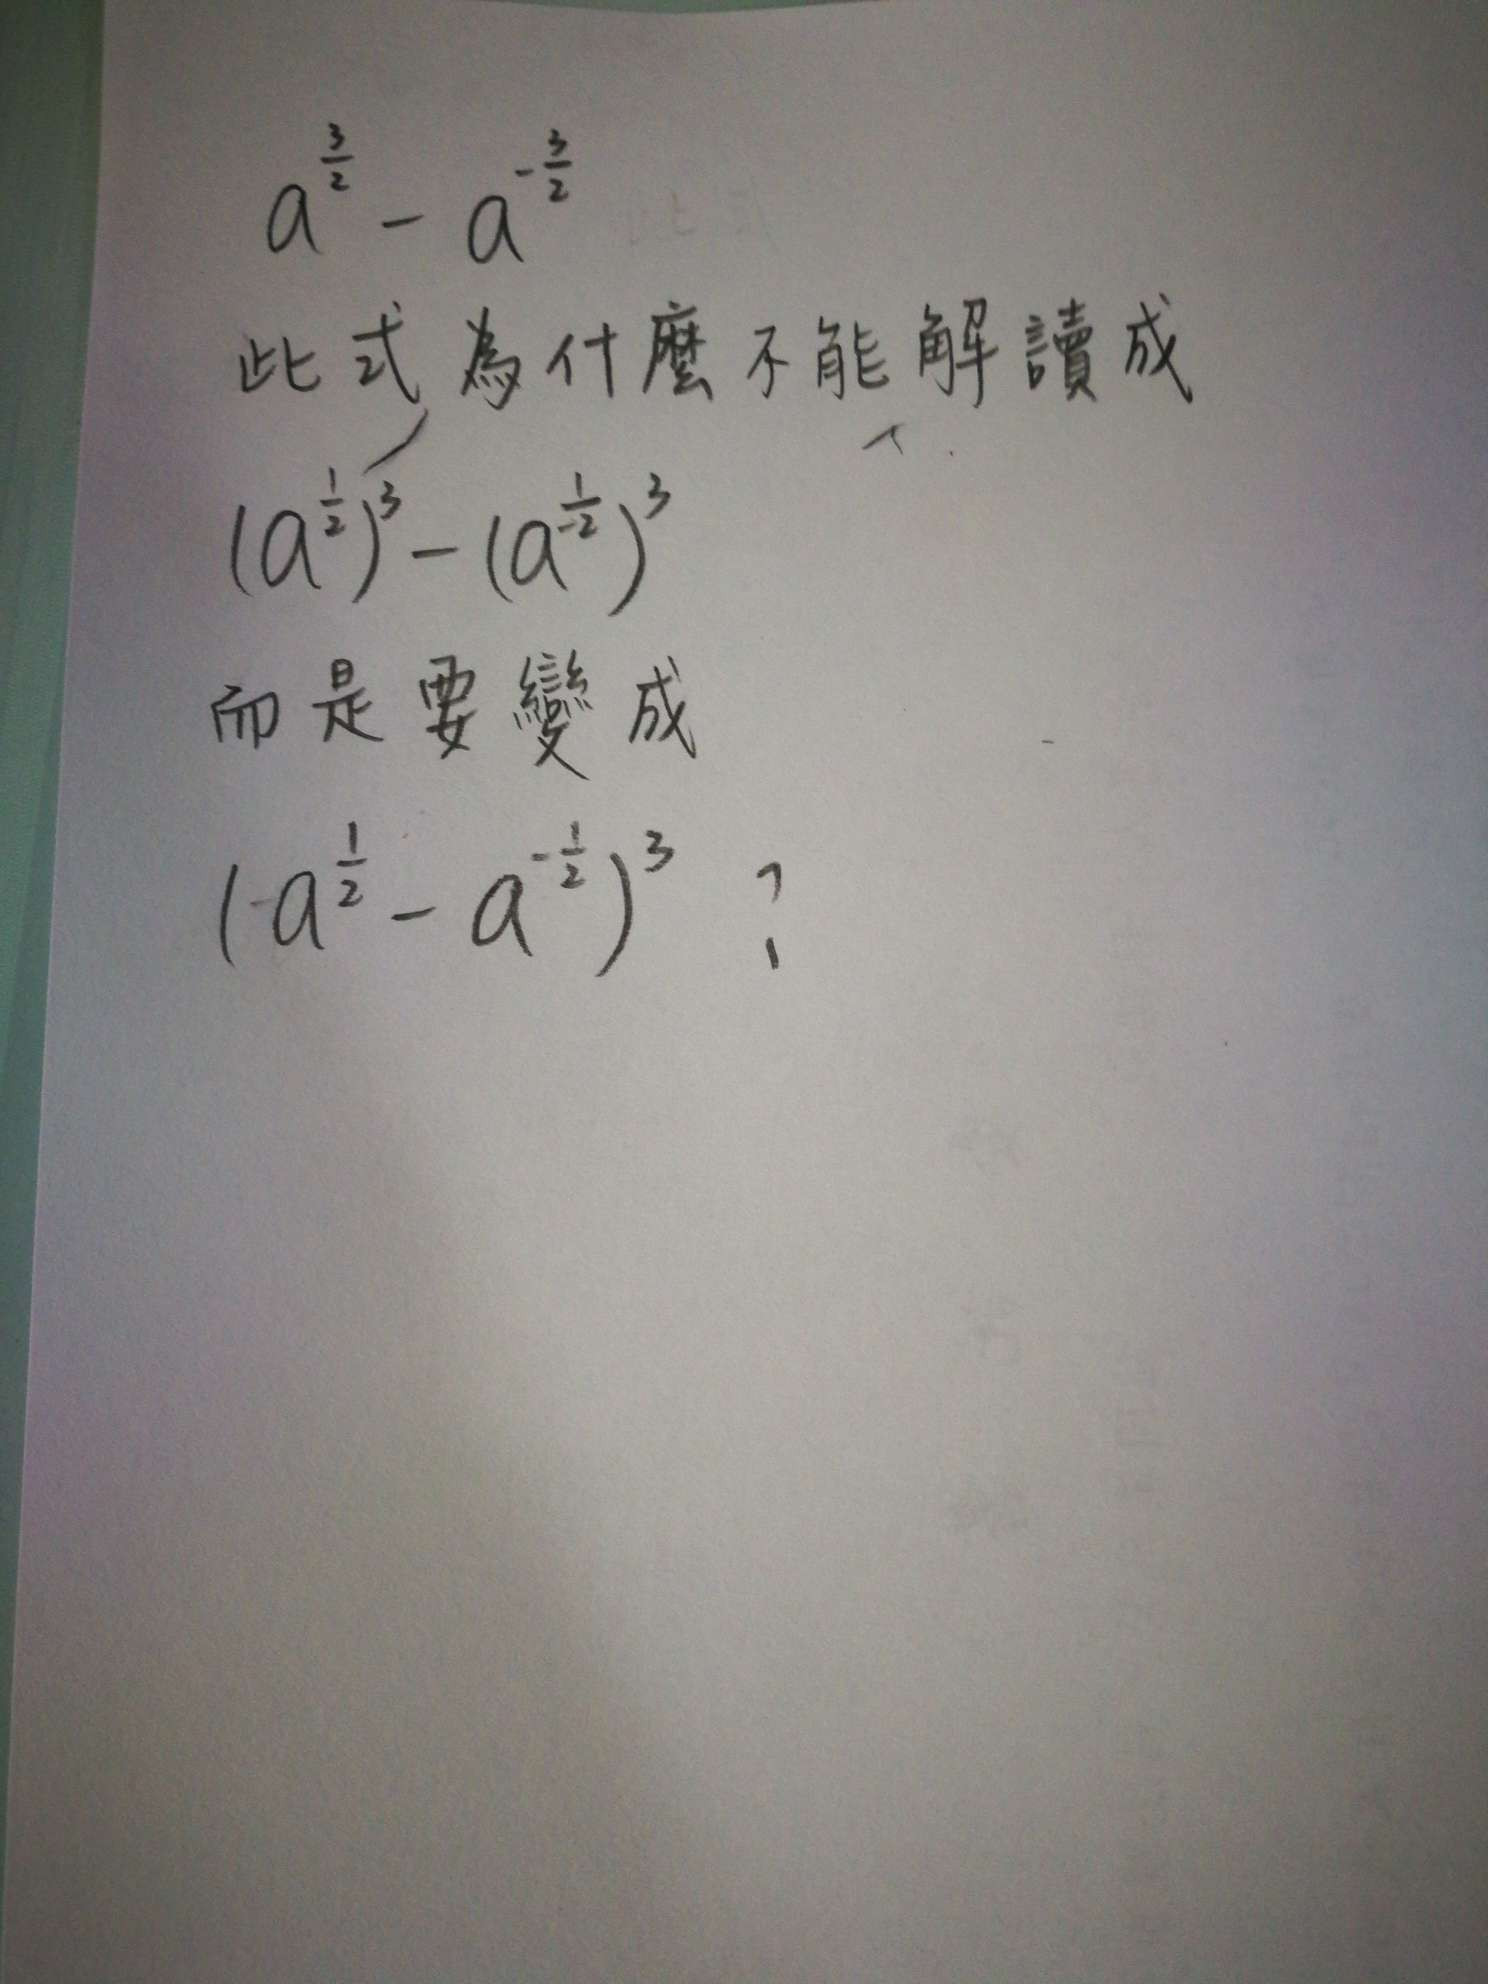 a^{\frac{3}{2}} - a^{-\frac{3}{2}}
此式為什麼不能解讀成
(a^{\frac{1}{2}})^3 - (a^{\frac{1}{-2}})^3
而是要變成
(a^{\frac{1}{2}} - a^{-\frac{1}{2}})^3 ?